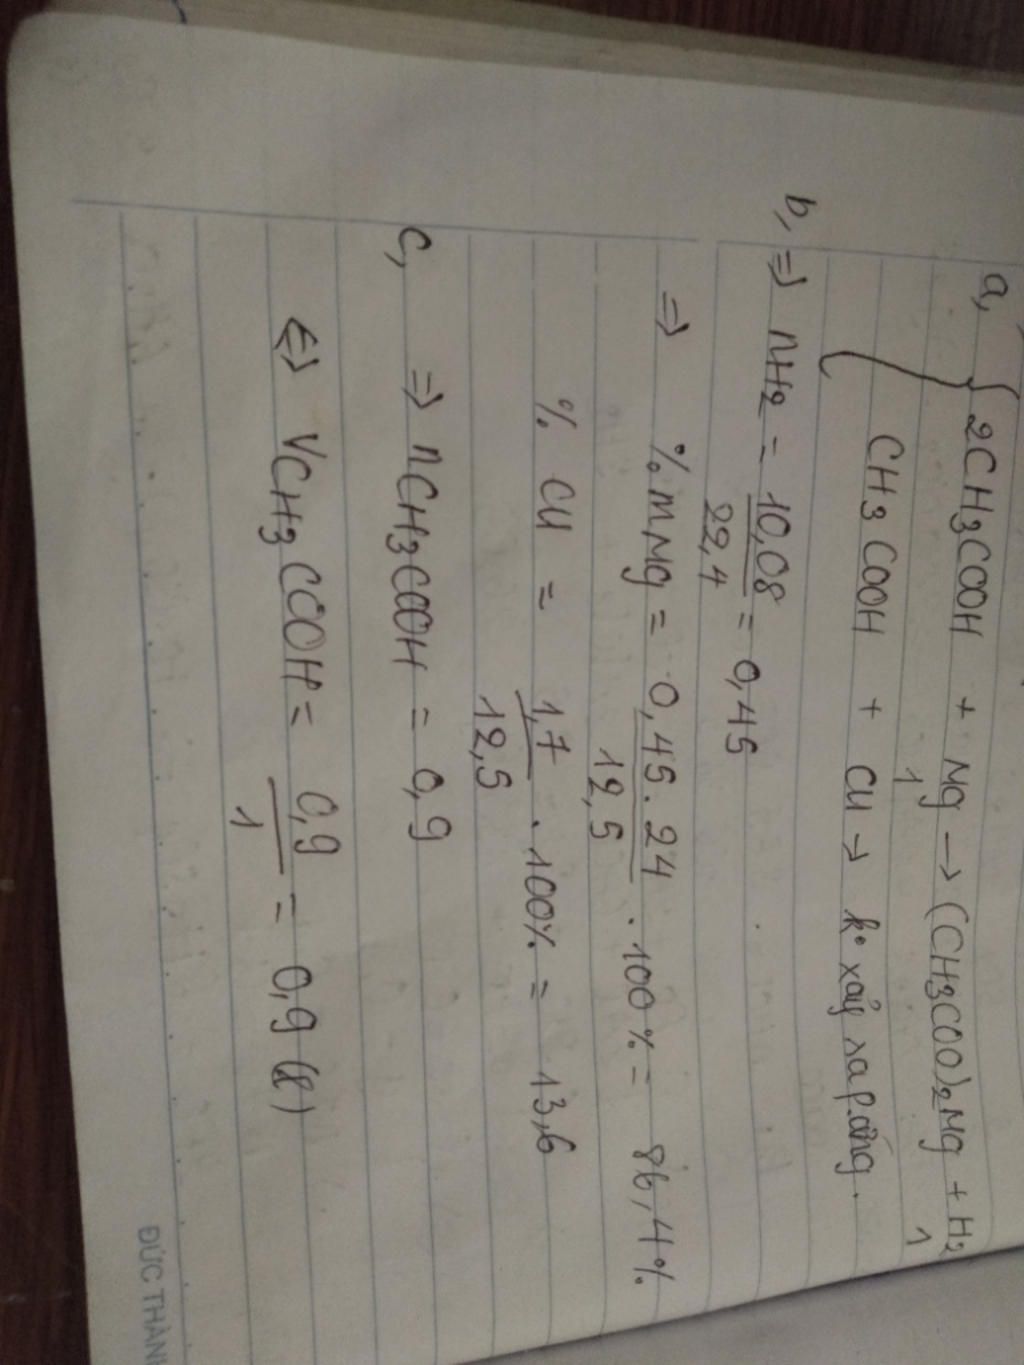 a, { 2CH3COOH + Mg → (CH3COO)2Mg + H2
1 1
CH3COOH + CU → k° xảy ra p.ứng.
b, => nH2 = 10,08 / 22,4 = 0,45
=> % mMg = 0,45.24 / 12,5 . 100% = 86,4%
% CU = 1,7 / 12,5 . 100% = 13,6
c, => nCH3COOH = 0,9
<=> VCH3COOH = 0,9 / 1 = 0,9 (l)
ĐỨC THÀNH